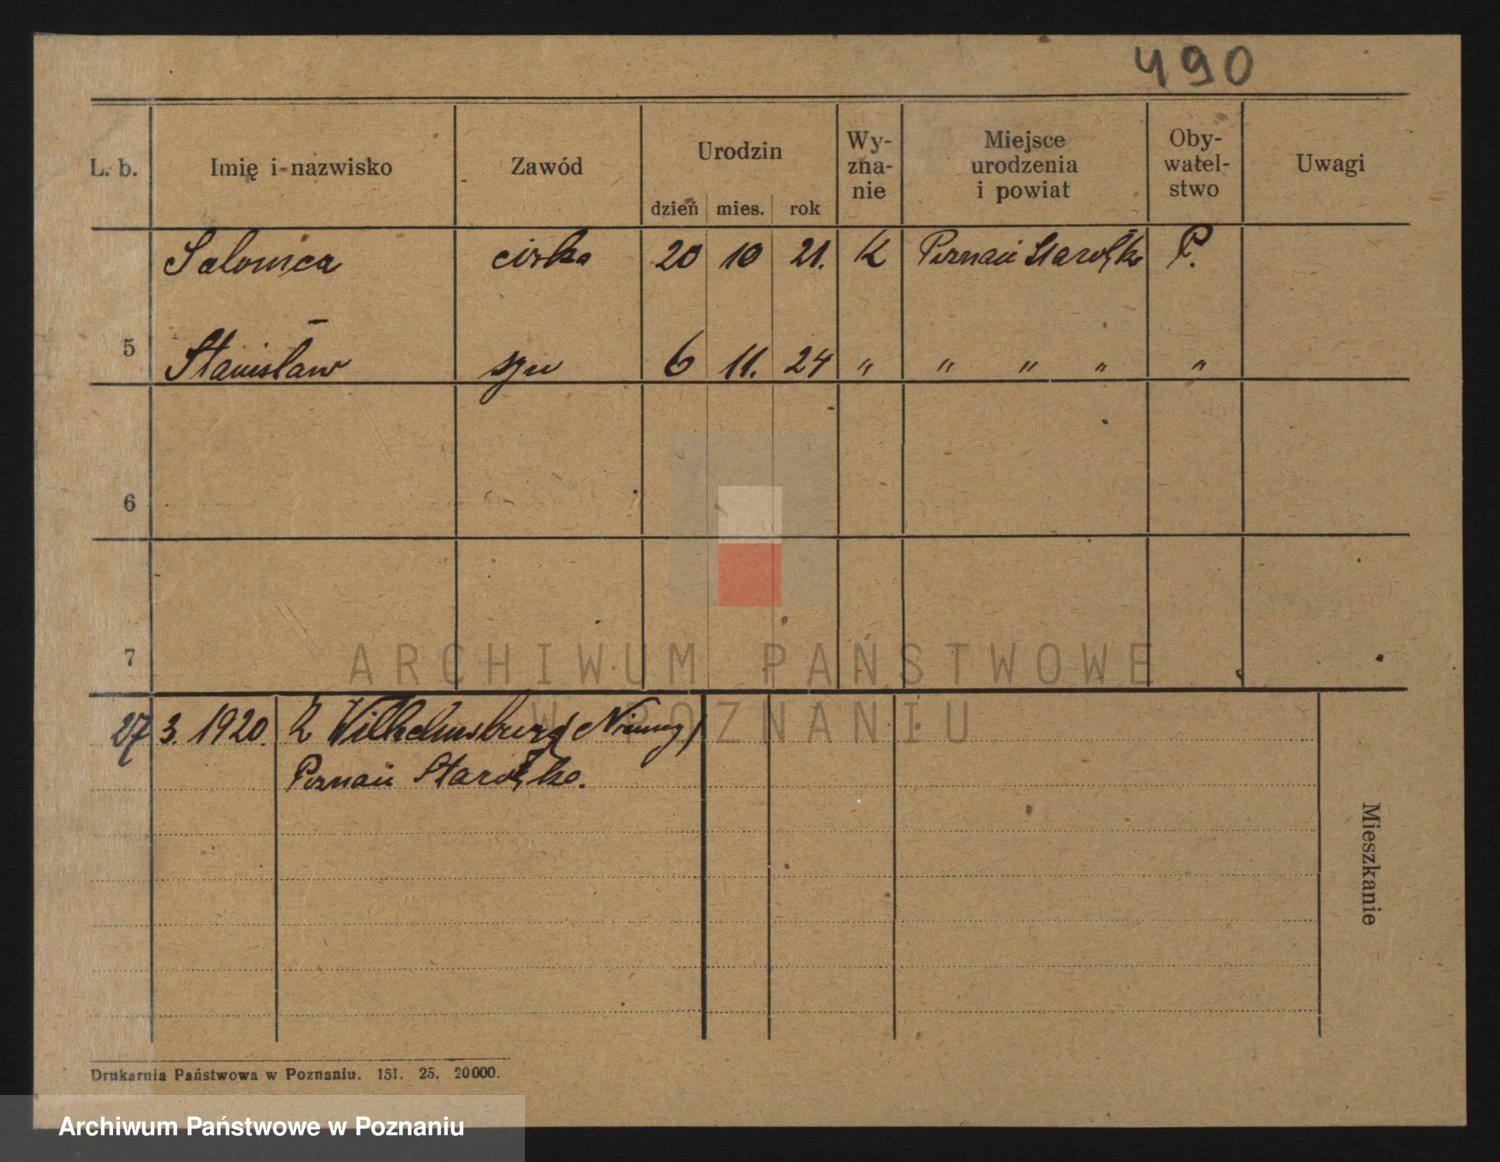 490
L. b. Imię i nazwisko Zawód Urodzin dzień mies. rok Wy-zna-nie Miejsce urodzenia i powiat Oby-watel-stwo Uwagi
Salomea córka 20 10 21. K Poznań Starołęka P.
5 Stanisław syn 6 11. 24 " " " " "
6
7
27 3. 1920. Z Wilhelmsburg (Niemcy)
Poznań Starołęka.
Mieszkanie
Drukarnia Państwowa w Poznaniu. 151. 25. 20000.
ARCHIWUM PAŃSTWOWE
W POZNANIU
Archiwum Państwowe w Poznaniu